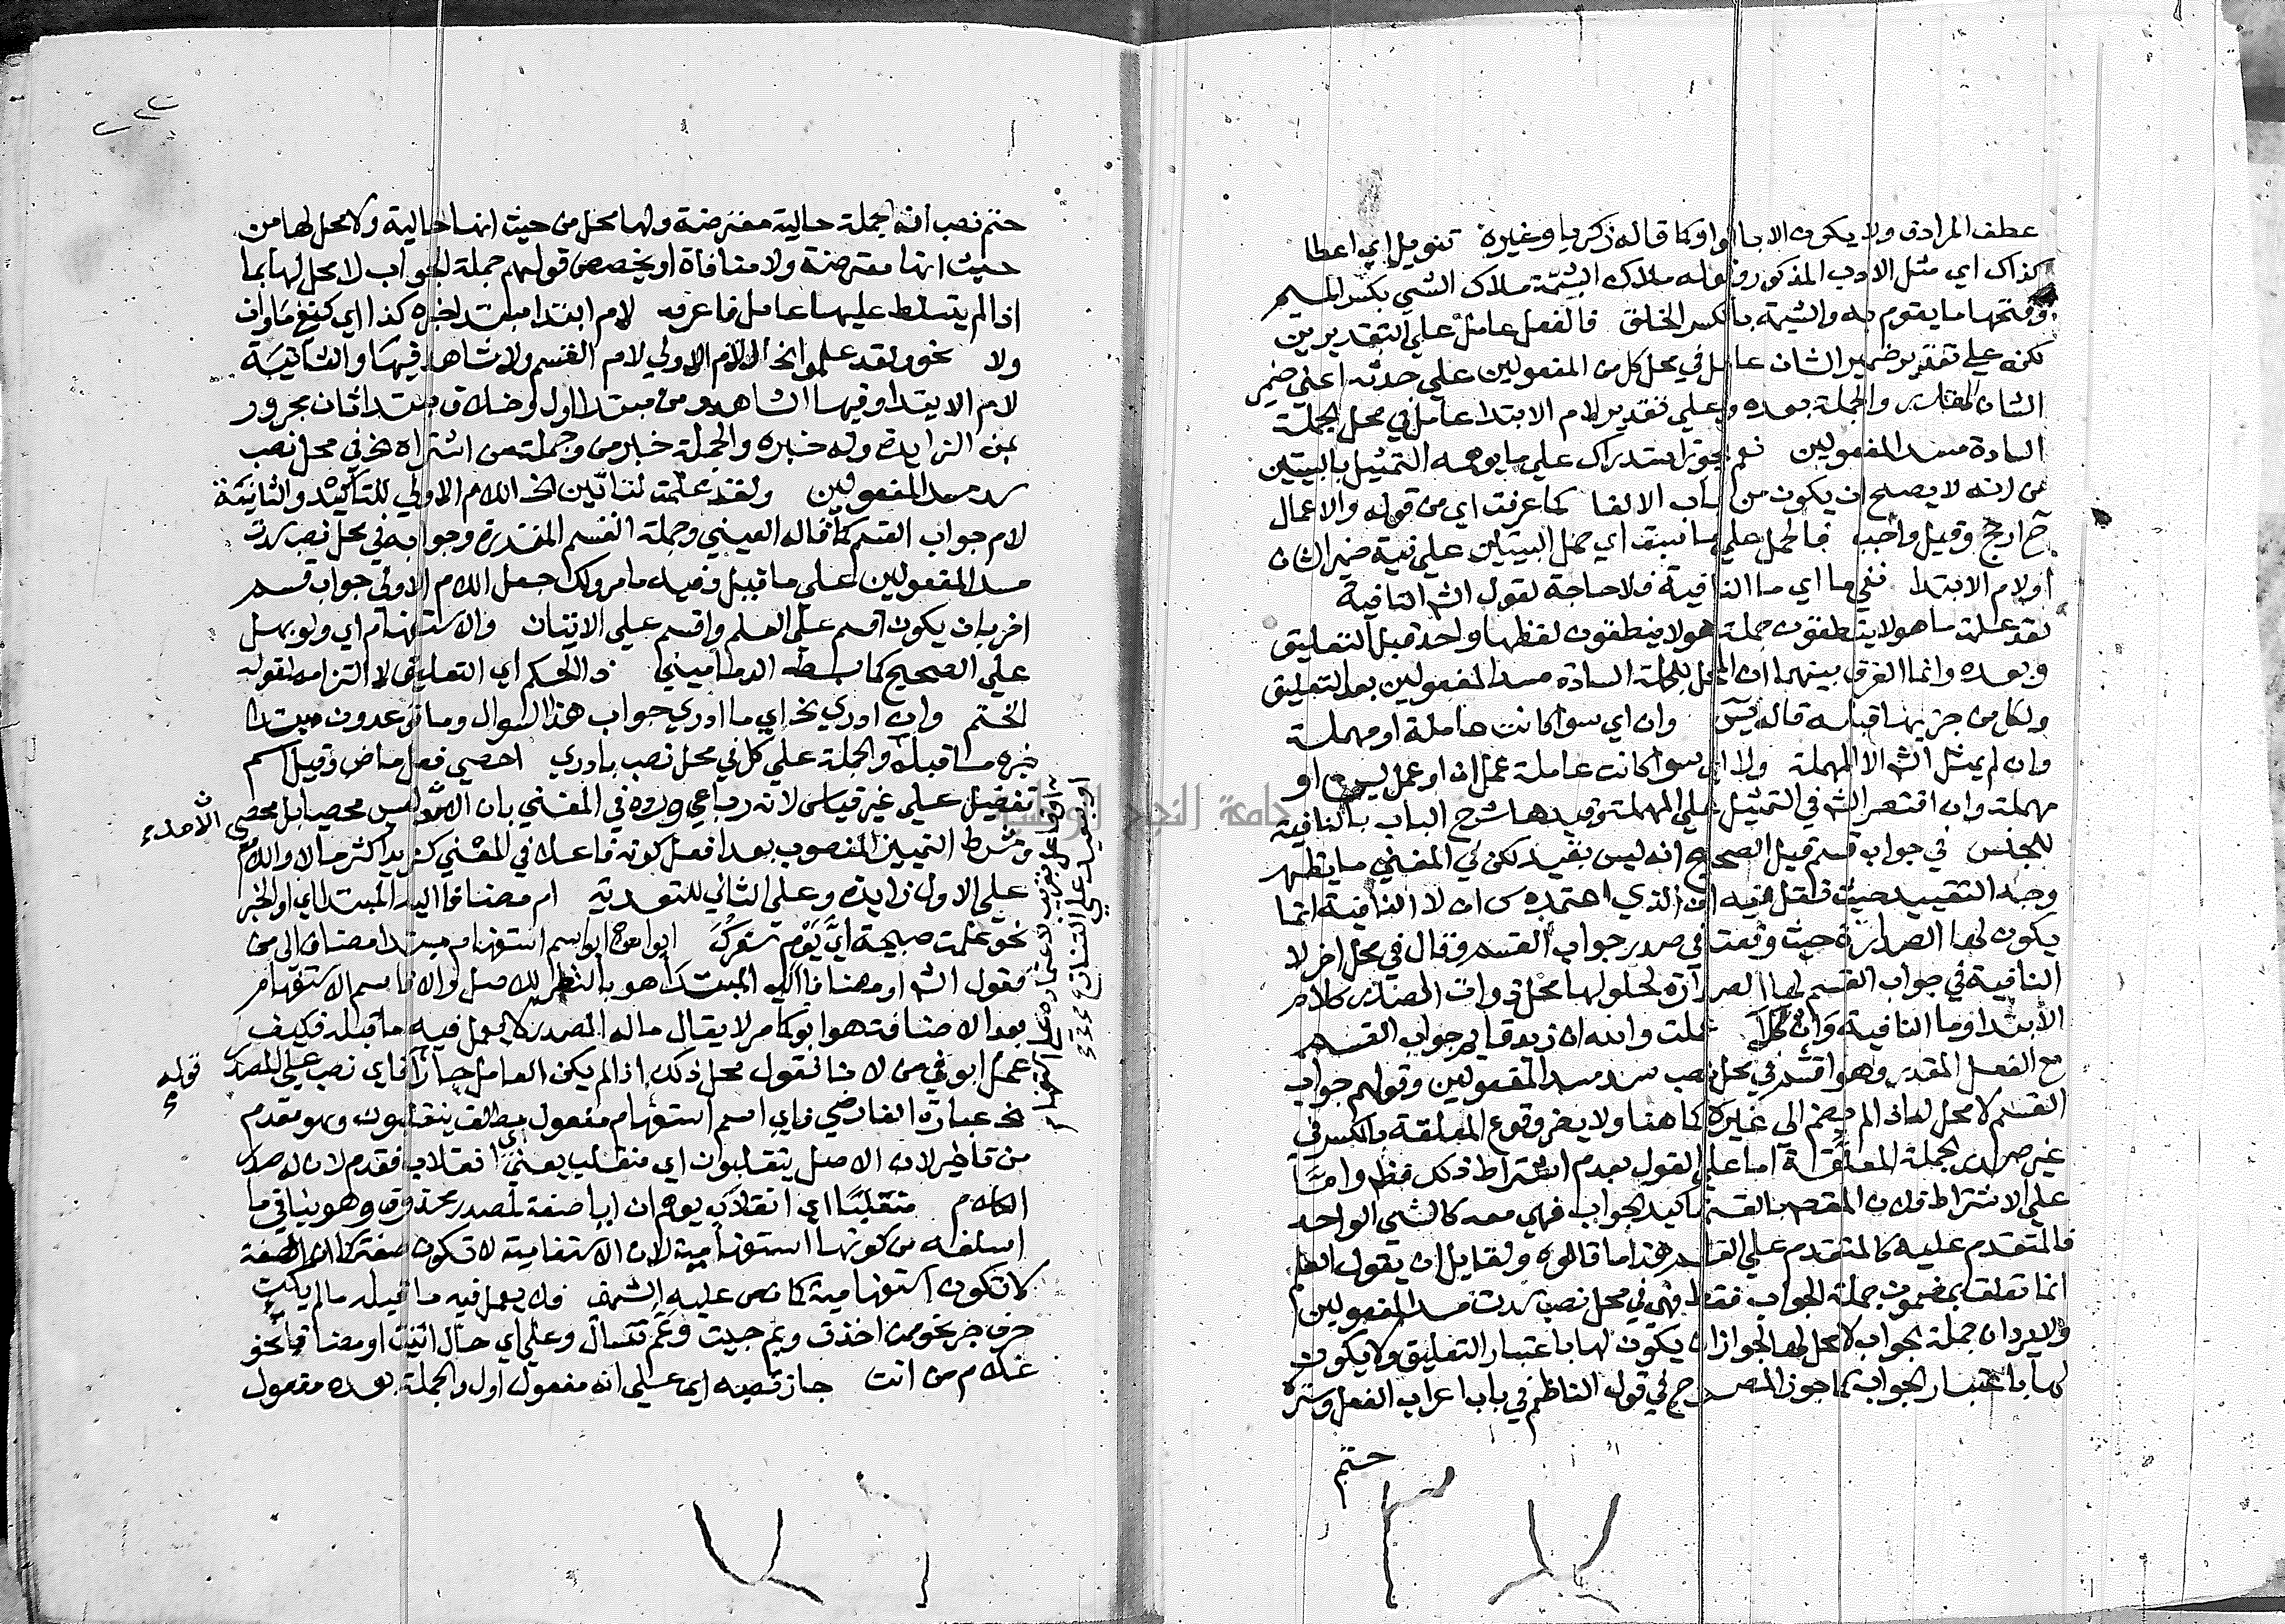 عطف المرادف ولا يكون الا بالواو كما قاله زكريا وغيره تنويل اي اعطا
كذاك اي مثل الادب المذكور وقوله ملاك الشيمة ملاك الشي بكسر الميم
وفتحها ما يقوم به والشيمة بالكسر الخلق فالفعل عامل على التقديرين
لكنه على تقدير ضمير الشان عامل في محل كل من المفعولين على حدته اعني ضمير
الشان المقدر والجملة بعده وعلى تقدير لام الابتدا عامل في محل الجملة
السادة مسد المفعولين نعم يجوز استدراك على ما يوهمه التمثيل بالبيتين
من انه لا يصلح ان يكون من باب الالغا كما عرفت اي من قوله والاعمال
ح ارجح وقيل واجب فالحمل على ما سبق اي حمل البيتين على نية ضمير الشان
او لام الابتدا نفي ما اي ما النافية فلا حاجة لقول الش النافية
لقد علمت ما هولا ينطقون جملة هولا ينطقون لفظها واحد قبل التعليق
وبعده وانما الفرق بينهما ان المحل للجملة السادة مسد المفعولين بعد التعليق
ولكل من جزيها قبله قاله يس وان اي سوا كانت عاملة او مهملة
وان لم يمثل الش الا للمهملة ولا اي سوا كانت عاملة عمل ان او عمل ليس او
مهملة وان اقتصر الش في التمثيل على المهملة وقيدها شرح الباب بالنافية
للجنس في جواب قسم قيل الصحيح انه ليس بقيد لكن في المغني ما يظهر
وجه التقييد حيث نقل فيه ان الذي اعتمده س ان لا النافية انما
يكون لها الصدارة حيث وقعت في صدر جواب القسم وقال في محل اخر لا
النافية في جواب القسم لها الصدارة لحلولها محل ذوات الصدر كلام
الابتدا وما النافية وان كلا علمت والله ان زيد قايم جواب القسم
مع الفعل المقدر وهو اقسم في محل نصب سد مسد المفعولين وقولهم جواب
القسم لا محل له اذا لم يضم الى غيره كما هنا ولا يضر وقوع المعلقة بالكسر في
غير صدر الجملة المعلقة اما على القول بعدم اشتراط ذلك فظ واما
على الاشتراط فلان المقصد بالقسم تاكيد الجواب فهي معه كالشي الواحد
فالمتقدم عليه كالمتقدم على القسم هذا ما قالوه ولقايل ان يقول العلم
انما تعلق بمضمون جملة الجواب فقط فهي في محل نصب سدت مسد المفعولين
ولا يرد ان جملة الجواب لا محل لها لجواز ان يكون لها باعتبار التعليق ولا يكون
لها باعتبار الجواب كما جوز المصرح في قول الناظم في باب اعراب الفعل وستره
حتم
حتم نصب انه جملة حالية معترضة ولها محل من حيث انها حالية ولا محل لها من
حيث انها معترضة ولا منافاة او يخصص قولهم جملة الجواب لا محل لها بما
اذا لم يتسلط عليها عامل فاعرفه لام ابتدا مبتدا خبره كذا اي كنفي ما وان
ولا نحو ولقد علموا الخ اللام الاولى لام القسم ولا شاهد فيها والثانية
لام الابتدا وفيها الشاهد ومن مبتدا اول وخلاق مبتدا ثان مجرور
بمن الزايدة وله خبره والجملة خبر من وجملة من اشتراه الخ في محل نصب
سد مسد المفعولين ولقد علمت لتاتين الخ اللام الاولى للتاكيد والثانية
لام جواب القسم كما قاله العيني وجملة القسم المقدرة وجوابه في محل نصب سدت
مسد المفعولين على ما قيل وفيه ما مر ولك جعل اللام الاولى جواب قسم
اخر بان يكون اقسم على العلم واقسم على الاتيان والاستفهام اي ولو بهل
على الصحيح كما بسطه الدماميني ذا الحكم اي التعليق لا التزامه لقوله
الحتم وان ادري الخ اي ما ادري جواب هذا السوال وما توعدون مبتدا
خبره ما قبله والجملة على كل في محل نصب بادري احصى فعل ماض وقيل اسم
تفضيل على غير قياس لانه رباعي ورده في المغني بان الامد ليس محصيا بل محصى
وشرط التمييز المنصوب بعد افعل كونه فاعلا في المعنى كزيد اكثر مالا واللام
على الاول زايدة وعلى الثاني للتعدية ام مضافا اليه المبتدا اي او الخبر
نحو علمت صبيحة اي يوم سفرك ابو من ابو اسم استفهام مبتدا مضاف الى من
فقول الش او مضافا اليه المبتدا هو بالنظر للاصل والا فاسم الاستفهام
بعد الاضافة هو ابو كامر لا يقال ماله الصدر لا يعمل فيه ما قبله فكيف
عمل ابو في من لانا نقول محل ذلك اذا لم يكن العامل جارا فاي نصب على المصدر
الخ عبارة الفارضي فاي اسم استفهام مفعول مطلق ينقلبون وهو مقدم
من تاخير لان الاصل ينقلبون اي منقلب يعني اي انقلاب فقدم لان له صدر
الكلام منقلبا اي انقلاب يوهم ان ايا صفة لمصدر محذوف وهو ينافي ما
اسلفه من كونها استفهامية لان الاستفهامية لا تكون صفة كما ان الصفة
لا تكون استفهامية كما نص عليه الشمني فلا يعمل فيه ما قبله ما لم يكن
حرف جر نحو ممن اخذت وبم جيت وعم تسال وعلى اي حال اتيت او مضافا نحو
غلام من انت جاز نصبه اي على انه مفعول اول والجملة بعده مفعول
الامد
قوله
جامعة النجاح الوطنية